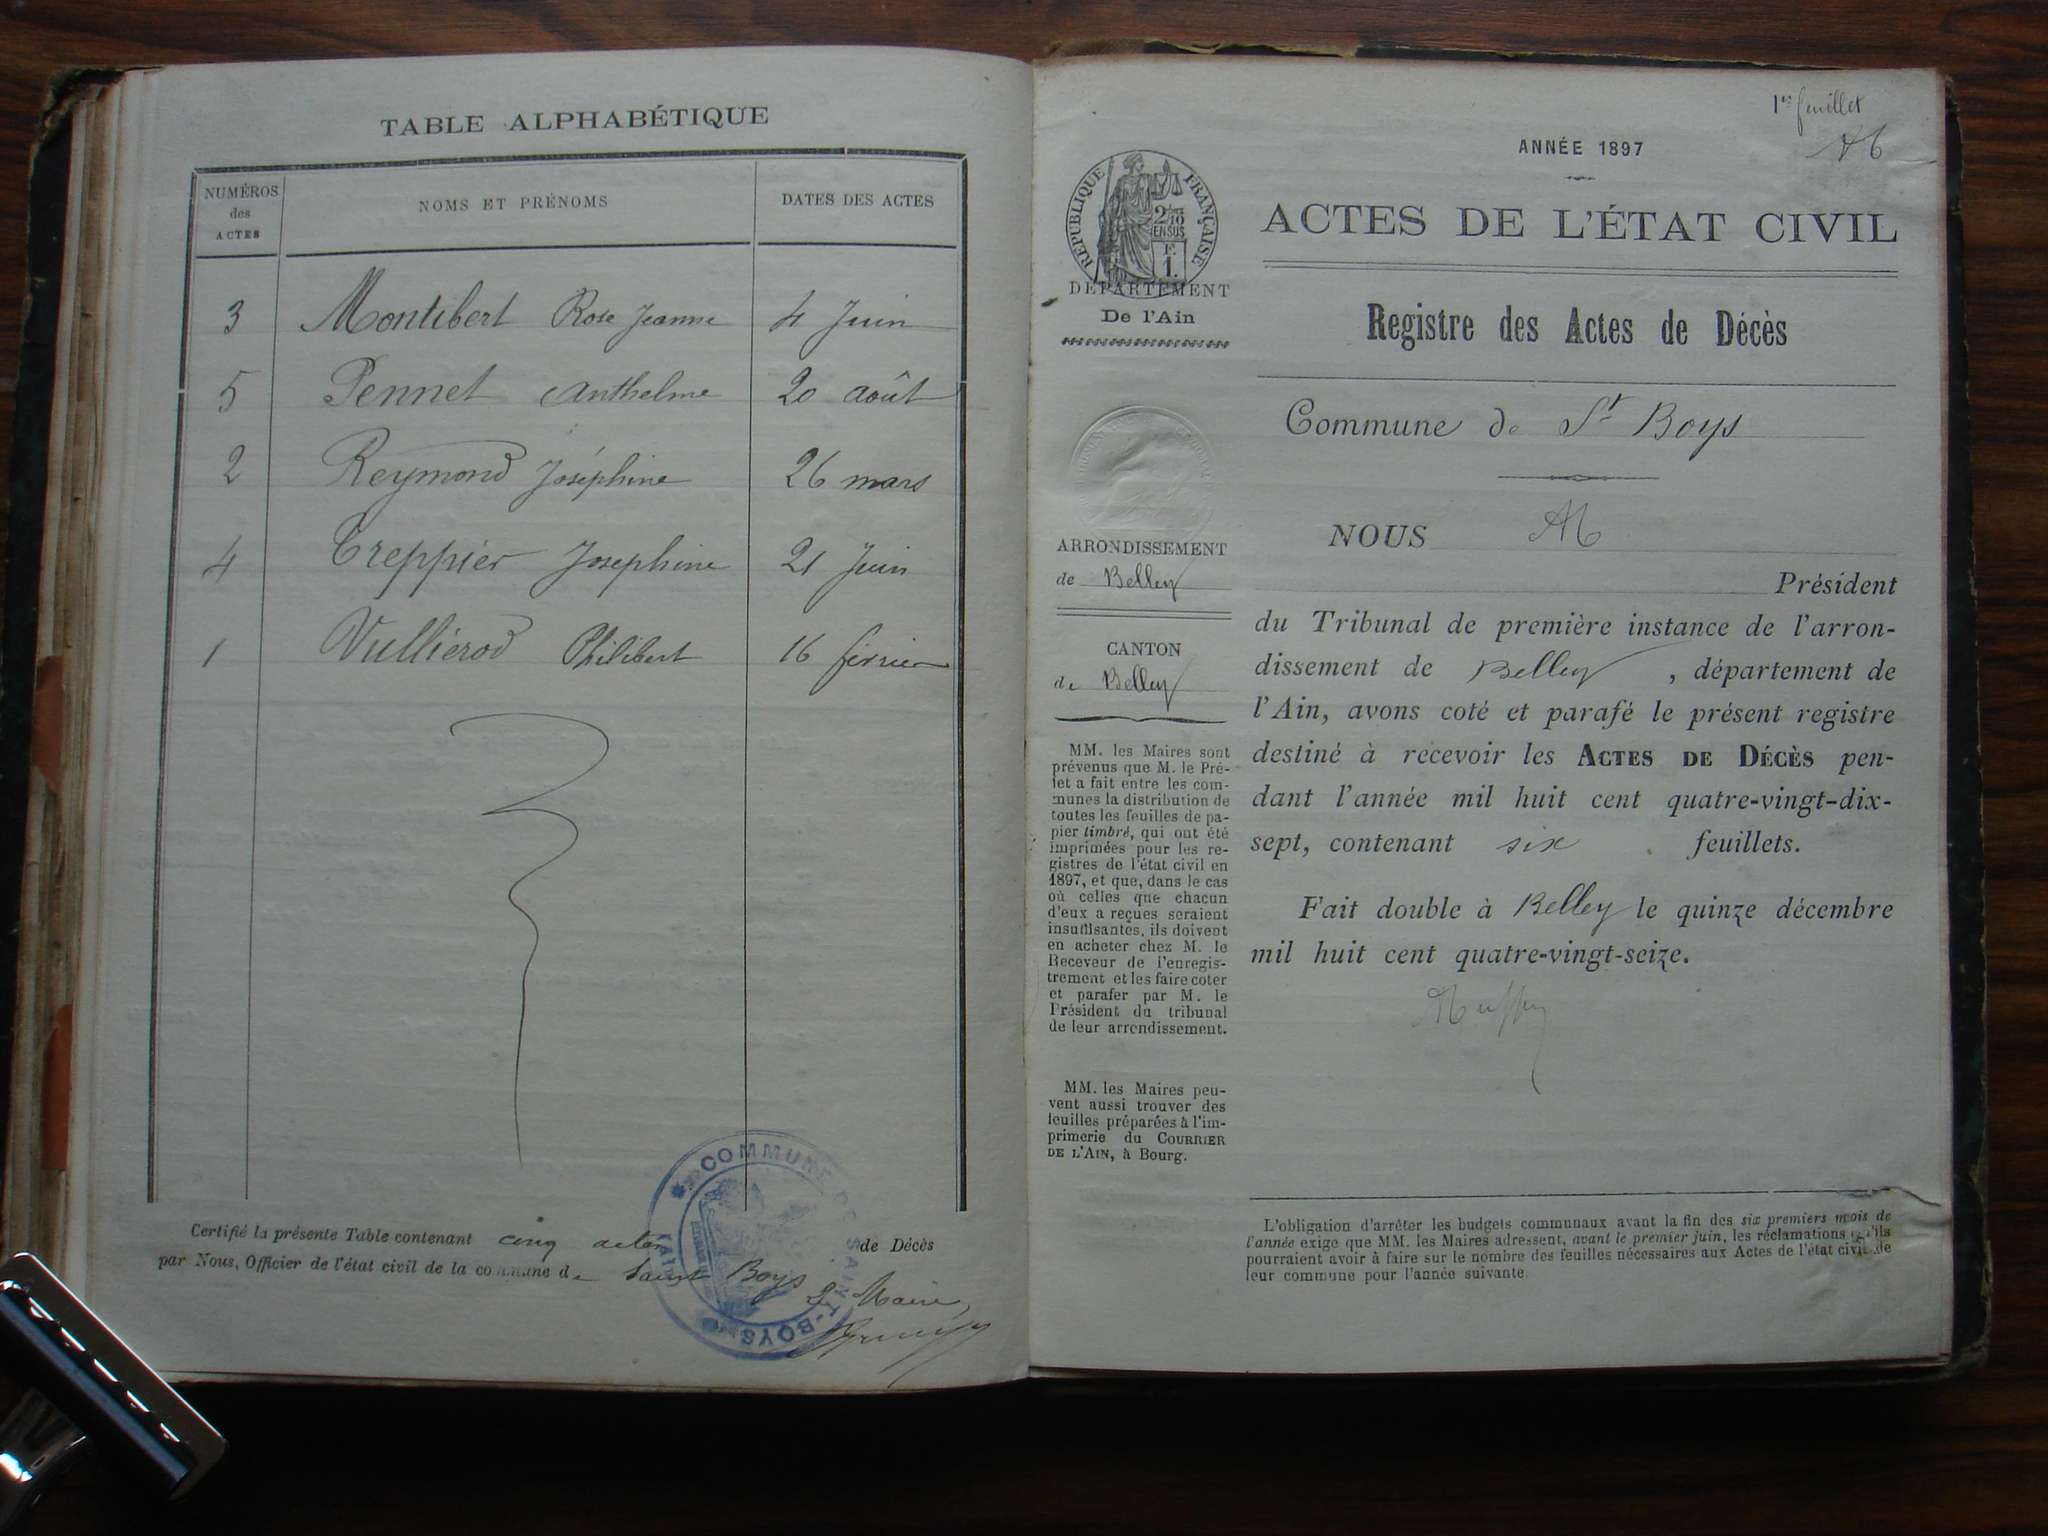 TABLE ALPHABÉTIQUE
NUMÉROS
des
ACTES
NOMS ET PRÉNOMS
DATES DES ACTES
3 Montibert Rose Jeanne 4 Juin
5 Pennet Anthelme 20 août
2 Reymond Joséphine 26 mars
4 Treppier Josephine 21 Juin
1 Vulliérod Philibert 16 février
Certifié la présente Table contenant cinq actes de Décès
par Nous, Officier de l'état civil de la commune de Saint Boys
Le Maire,
COMMUNE DE SAINT-BOYS
(AIN)
1er feuillet
ANNÉE 1897
RÉPUBLIQUE FRANÇAISE
2/10
EN SUS
F.
1.
DÉPARTEMENT
De l'Ain
ARRONDISSEMENT
de Belley
CANTON
de Belley
MM. les Maires sont
prévenus que M. le Pré-
fet a fait entre les com-
munes la distribution de
toutes les feuilles de pa-
pier timbré, qui ont été
imprimées pour les re-
gistres de l'état civil en
1897, et que, dans le cas
où celles que chacun
d'eux a reçues seraient
insuffisantes, ils doivent
en acheter chez M. le
Receveur de l'enregis-
trement et les faire coter
et parafer par M. le
Président du tribunal
de leur arrondissement.
MM. les Maires peu-
vent aussi trouver des
feuilles préparées à l'im-
primerie du COURRIER
DE L'AIN, à Bourg.
ACTES DE L'ÉTAT CIVIL
Registre des Actes de Décès
Commune de St Boys
NOUS
Président
du Tribunal de première instance de l'arron-
dissement de Belley, département de
l'Ain, avons coté et parafé le présent registre
destiné à recevoir les ACTES DE DÉCÈS pen-
dant l'année mil huit cent quatre-vingt-dix-
sept, contenant six feuillets.
Fait double à Belley le quinze décembre
mil huit cent quatre-vingt-seize.
L'obligation d'arrêter les budgets communaux avant la fin des six premiers mois de
l'année exige que MM. les Maires adressent, avant le premier juin, les réclamations qu'ils
pourraient avoir à faire sur le nombre des feuilles nécessaires aux Actes de l'état civil de
leur commune pour l'année suivante.